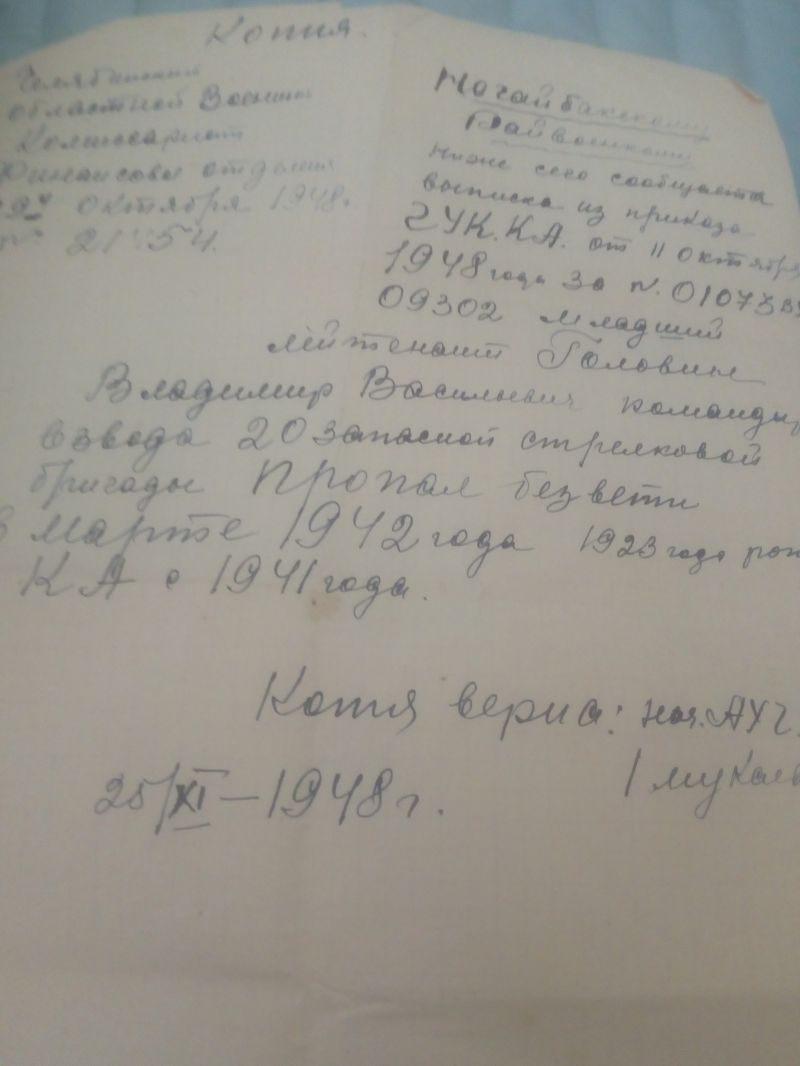 Копия.
Челябинский
областной Военный
Комиссариат
Финансовый отдел
октября 1948г.
Нагайбакскому
Райвоенкому
Ниже сего сообщается
выписка из приказа
ГУК.КА. от 11 октября
1948 года за №. 01073
09302 Младший
лейтенант Головин
Владимир Васильевич командир
взвода 20 запасной стрелковой
бригады Пропал безвети
в Марте 1942 года 1923 года рож
КА с 1941 года.
Копия верна: нач. АХЧ.
25/XI – 1948 г.